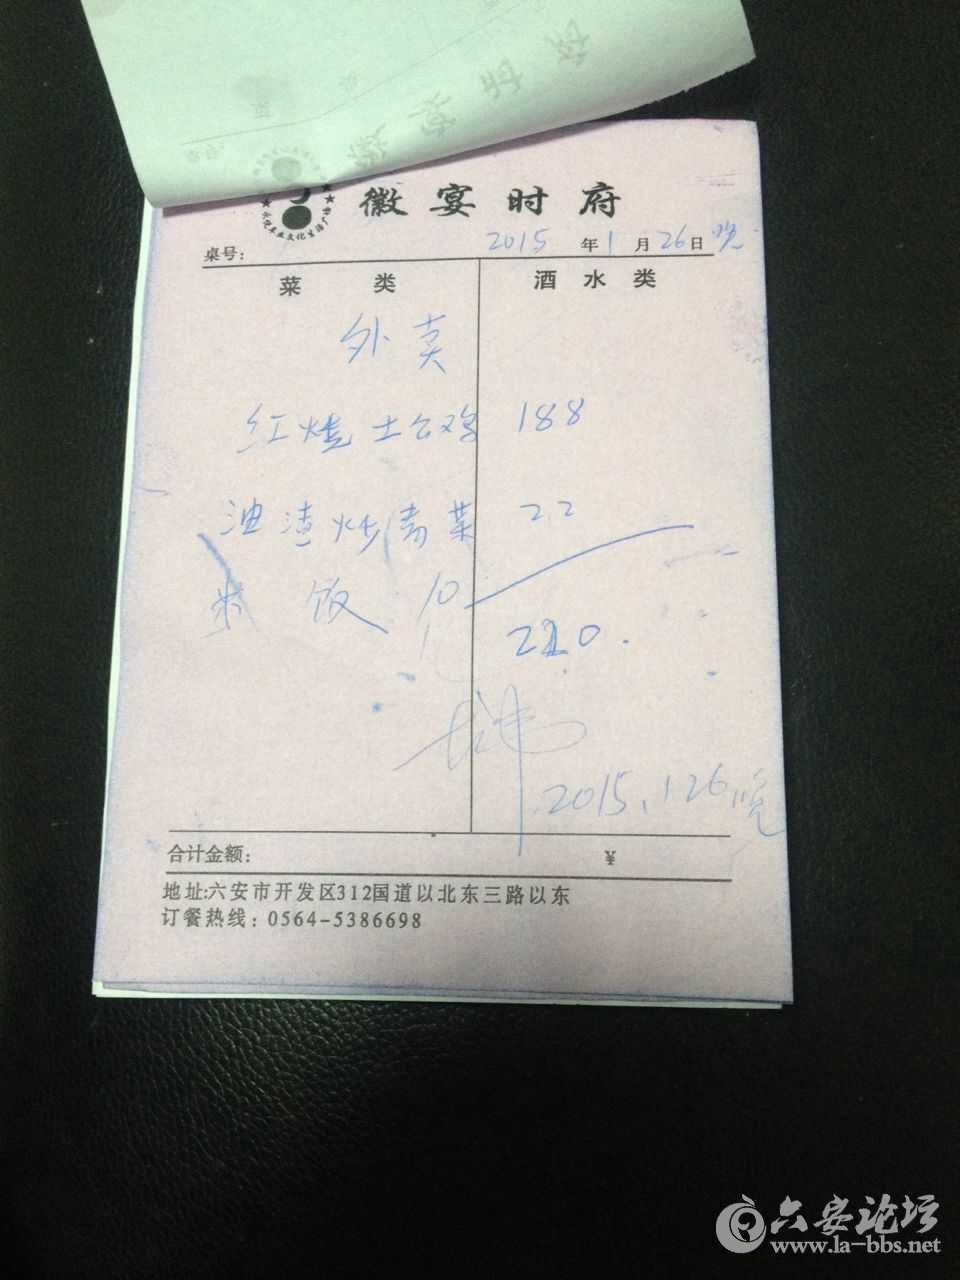 徽宴时府
桌号: 2015 年 1 月 26 日 晚
菜 类 酒 水 类
外卖
红烧土公鸡 188
油渣炒青菜 22
米饭 10
220.
2015.1 26 晚
合计金额: ¥
地址:六安市开发区312国道以北东三路以东
订餐热线: 0564-5386698
六安论坛
www.la-bbs.net